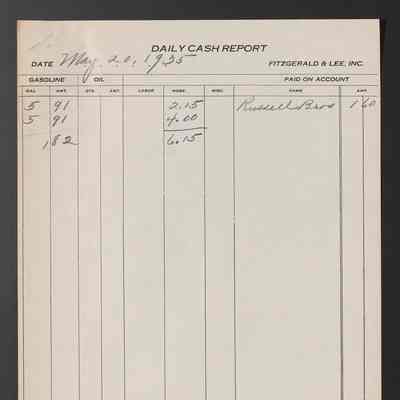 DAILY CASH REPORT
DATE May 20, 1935 FITZGERALD & LEE, INC.
GASOLINE OIL PAID ON ACCOUNT
GAL. AMT. QTS. AMT. LABOR MDSE. MISC. NAME AMT.
5 91 2.15 Russell Bros 1 60
5 91 4.00
1 82 6.15